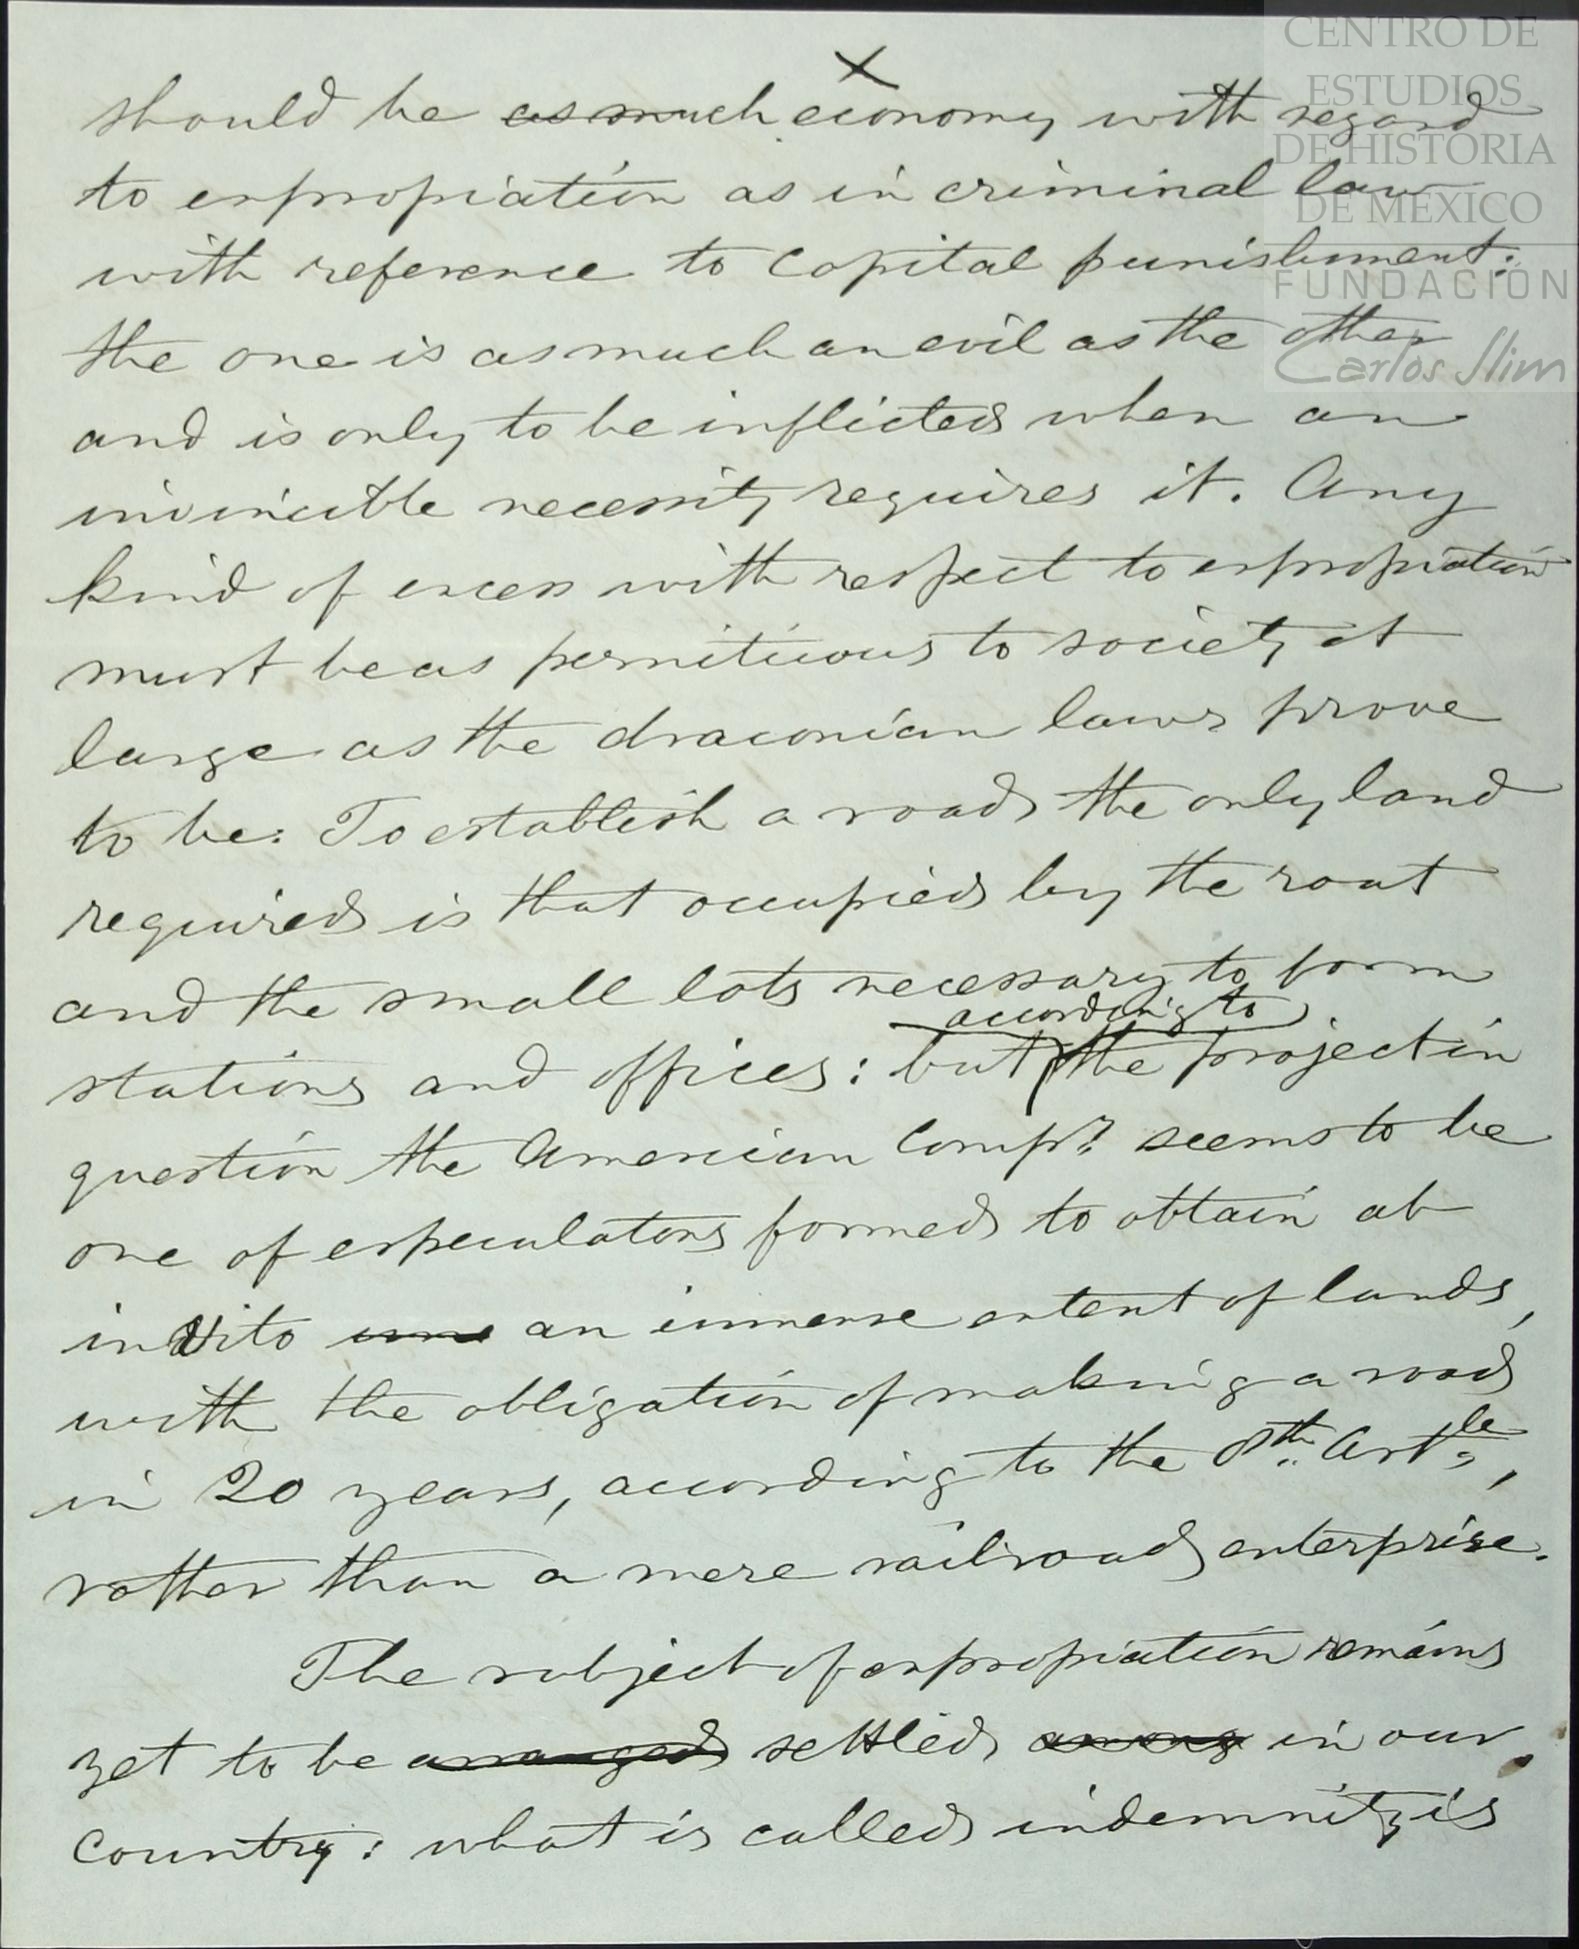 CENTRO DE
ESTUDIOS
DE HISTORIA
DE MEXICO
FUNDACION
Carlos Slim
x
should be as much economy with regard
to expropiation as in criminal law
with reference to Capital punishment:
the one is as much an evil as the other
and is only to be inflicted when an
invincible necessity requires it. Any
kind of excess with respect to expropiation
must be as pernitious to society at
large as the draconian laws prove
to be. To establish a road the only land
required is that occupied by the roat
and the small lots necessary to form
according to
stations and offices: but the project in
question the American Compy. seems to be
one of especulators formed to obtain ab
invito an inmense extent of lands,
with the obligation of making a road
in 20 years, according to the 8th. Artle.,
rather than a mere railroad enterprise.
The subject of expropiation remains
yet to be arranged settled among in our
Country: what is called indemnity is